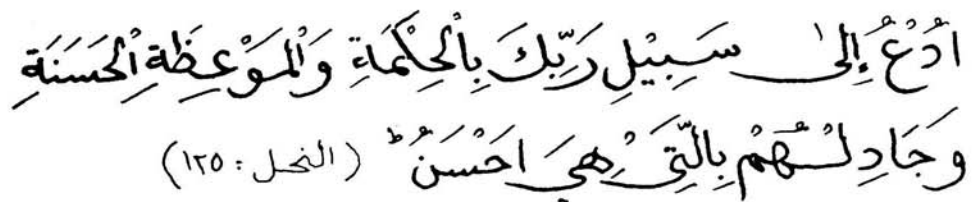 اُدْعُ إِلىٰ سَبِيْلِ رَبِّكَ بِالْحِكْمَاةِ وَالْمَوْعِظَةِ الْحَسَنَةِ
وَجَادِلْهُمْ بِالَّتِيْ هِيَ اَحْسَنُ ط (النحل: ١٢٥)